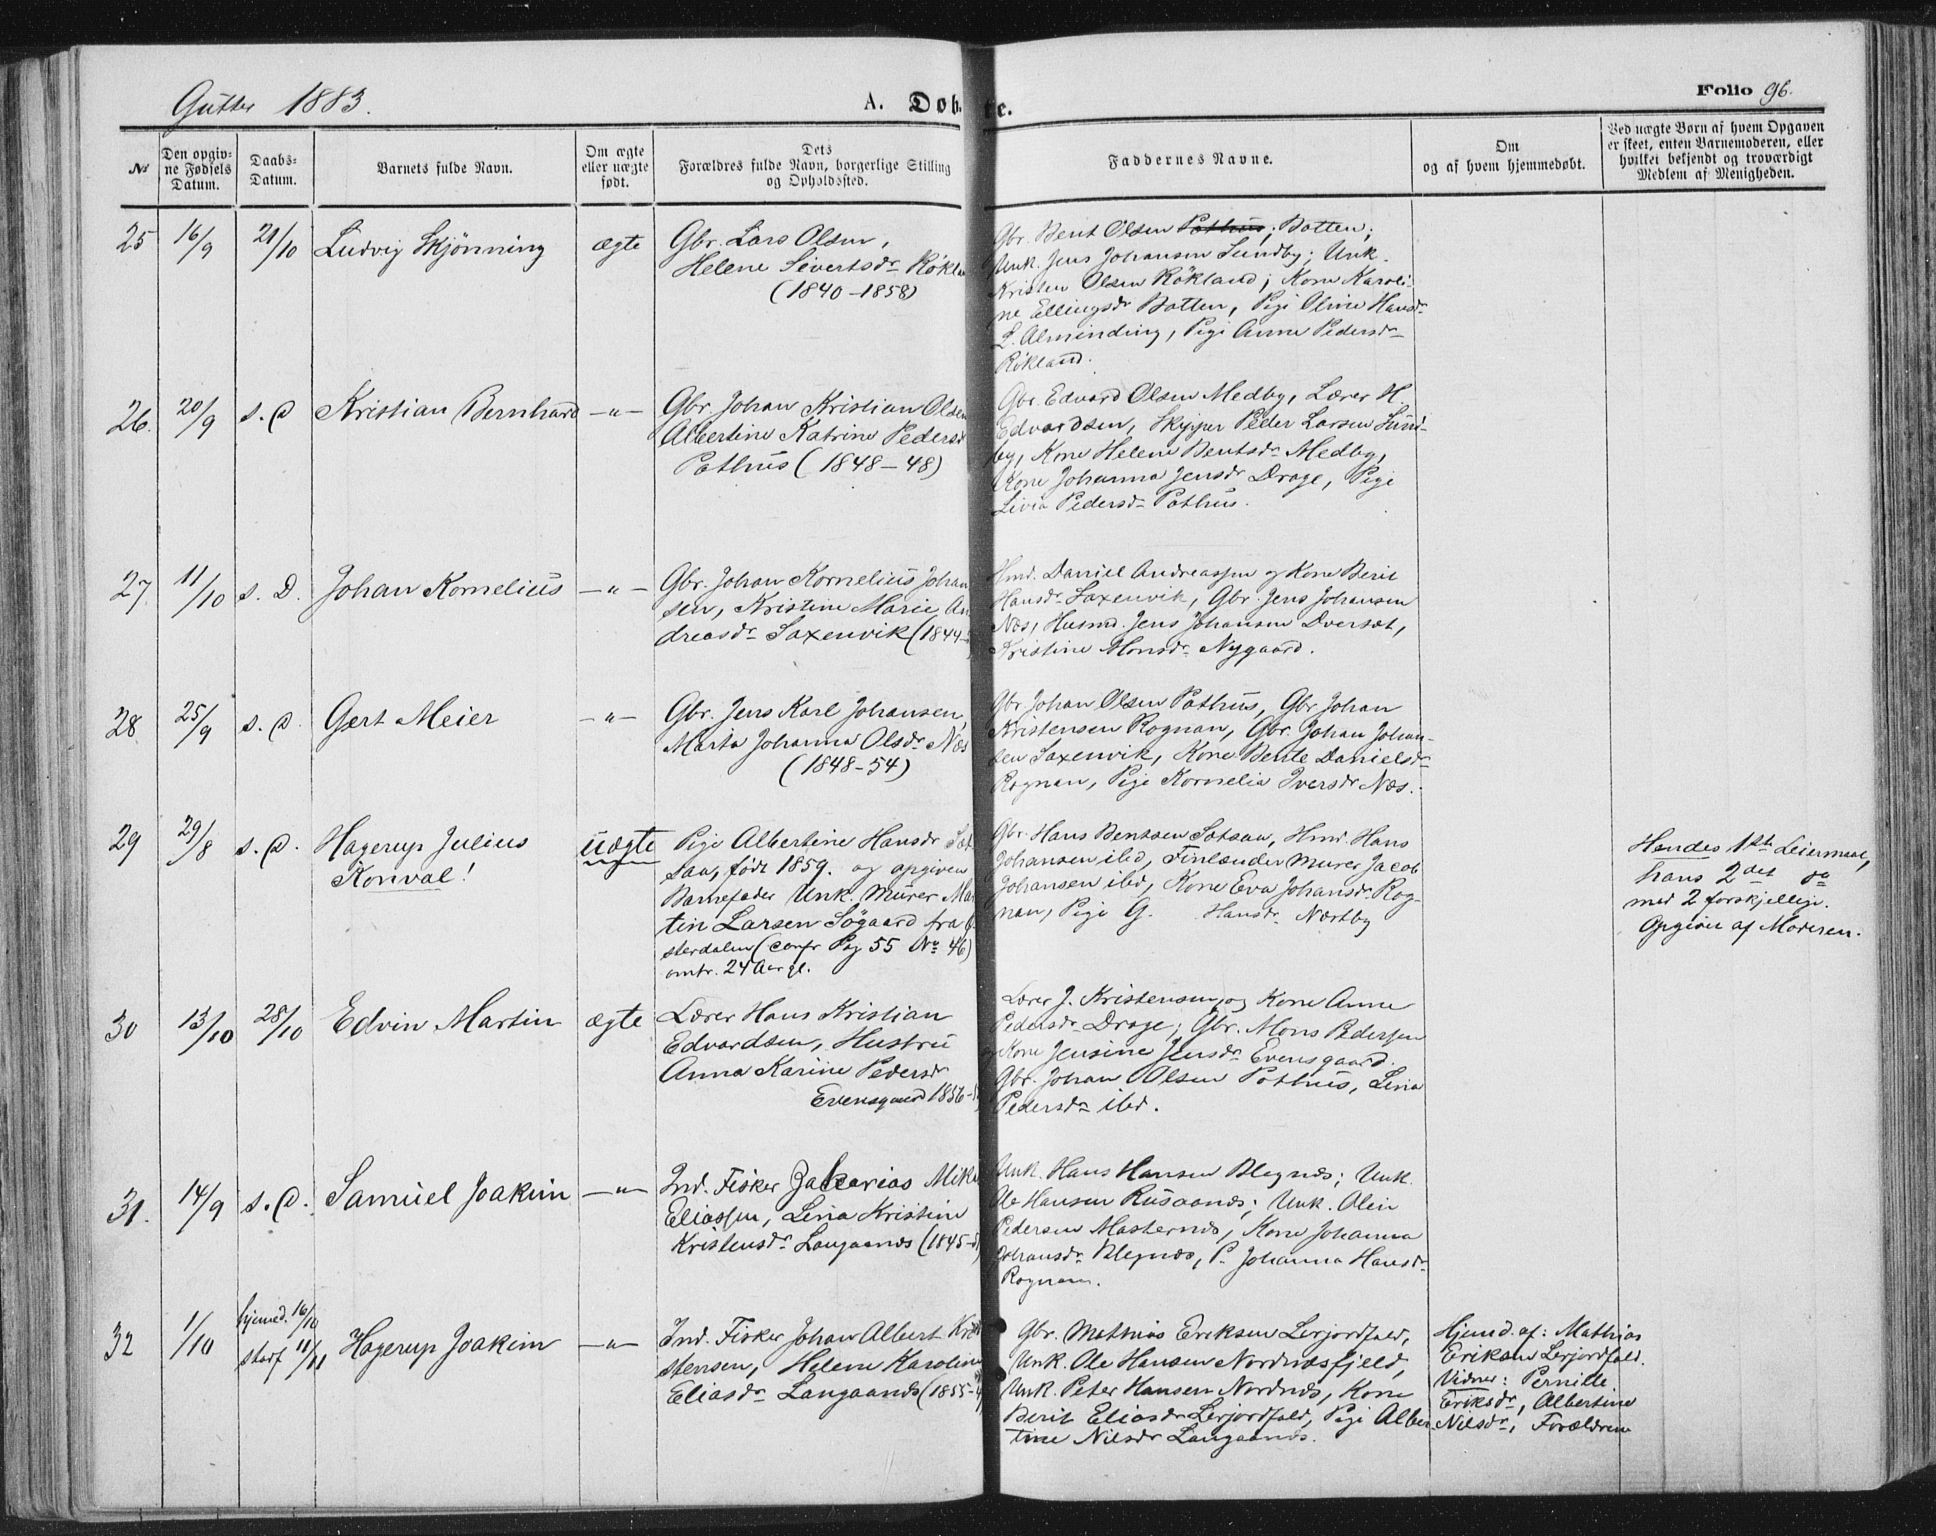 Gutter 1883.
A. Døb
te.
Folio 96.
No
Den opgivne Fødsels Datum.
Daabs-Datum.
Barnets fulde Navn.
Om ægte eller uægte født.
Dets Forældres fulde Navn, borgerlige Stilling og Opholdssted.
Faddernes Navne.
Om og af hvem hjemmedøbt.
Ved uægte Børn af hvem Opgaven er skeet, enten Barnemoderen, eller hvilket bekjendt og troværdigt Medlem af Menigheden.
25 16/9 21/10 Ludvig Skjönning ægte
Gbr. Lars Olsen,
Helene Sivertsdr Rökla
(1840-1858)
Gbr. Berit Olsen Pothus; Botten;
Unk. Jens Johansen Sundby; Unk.
Kristen Olsen Rökland; Kone Karoli-
ne Ellingsdr Botten, Pige Oline Hansdr
L. Alminding, Pige Anne Pedersdr
Rökland.
26. 20/9 s. D Kristian Bernhard -"-
Gbr. Johan Kristian Olsen
Albertine Katrine Pedersdr
Pothus (1848-48)
Gbr. Edvard Olsen Medby, Lærer H.
Edvardsen, Skypper Peder Larsen Sund-
by, Kone Helene Bentsdr Medby,
Kone Johanna Jensdr Drage, Pige
Livia Pedersdr Pothus.
27 11/10 s. D. Johan Kornelius -"-
Gbr. Johan Kornelius Johan
sen, Kristine Marie An
dreasdr Saxenvik (1844-
Hmd. Daniel Andreassen og Kone Berit
Hansdr Saxenvik, Gbr. Jens Johansen
Næs, Husmd. Jens Johansen Dverset,
Kristine Monsdr Nygaard.
28 25/9 s. D. Gert Meier -"-
Gbr. Jens Karl Johansen,
Marta Johanna Olsdr Næs
(1848-54)
Gbr Johan Olsen Pothus, Gbr Johan
Kristensen Rognan, Gbr. Johan Johan-
sen Saxenvik, Kone Bente Danielsdr
Rognan, Pige Kornelia Iversdr Næs.
29 29/8 s. D. Hagerup Julius uægte
Konval!
Pige Albertine Hansdr Sot
saa, født 1859. og opgiven
Barnefader Unk. Murer Mar
tin Larsen Sögaard fra
sterdalen (confr Pag 55 No 46)
omtr. 24 Aar gl.
Gbr Hans Bentsen Sotsaa, Hmd. Hans
Johansen ibd, Finlænder Murer Jacob
Johansen ibd, Kone Eva Johansdr Rog-
nan, Pige G. Hansdr Næstby
Hendes 1ste Leiermaal,
hans 2det do
med 2 forskjellige.
Opgiven af Moderen.
30 13/10 28/10 Edvin Martin ægte
Lærer Hans Kristian
Edvardsen, Hustru
Anna Karine Pedersdr
Evensgaard 1856-
Lærer J. Kristensen og Kone Anne
Pedersdr Drage; Gbr. Mons Pedersen
og Kone Jensine Jensdr Evensgaard.
Gbr. Johan Olsen Pothus, Lina
Pedersdr ibd.
31. 14/9 s. D. Samuel Joakim -"-
Ind. Fisker Zakarias Mik
Eliassen, Lina Kristine
Kristensdr Langaanes (1845-
Unk. Hans Hansen Blegnæs; Unk.
Ole Hansen Rusaanes; Unk. Olin
Pedersen Masternæs, Kone Johanna
Johansdr Blegnæs, P. Johanna Hansdr
Rognan.
32 1/10 hjemmed. 16/10
stadf 11/11 Hagerup Joakim -"-
Ind. Fisker Johan Albert Kri
stensen, Helene Karoline
Eliasdr Langaanes (1855-
Gbr. Mathias Eriksen Lerjordfald,
Unk. Ole Hansen Nordnæsfjeld,
Unk. Peter Hansen Nordnæs, Kone
Berit Eliasdr Lerjordfald, Pige Alber
tine Nilsdr Langaanes.
Hjemd. af: Mathias
Eriksen Lerjordfald.
Vidner: Pernille
Eriksdr, Albertine
Nilsdr, Forældrene